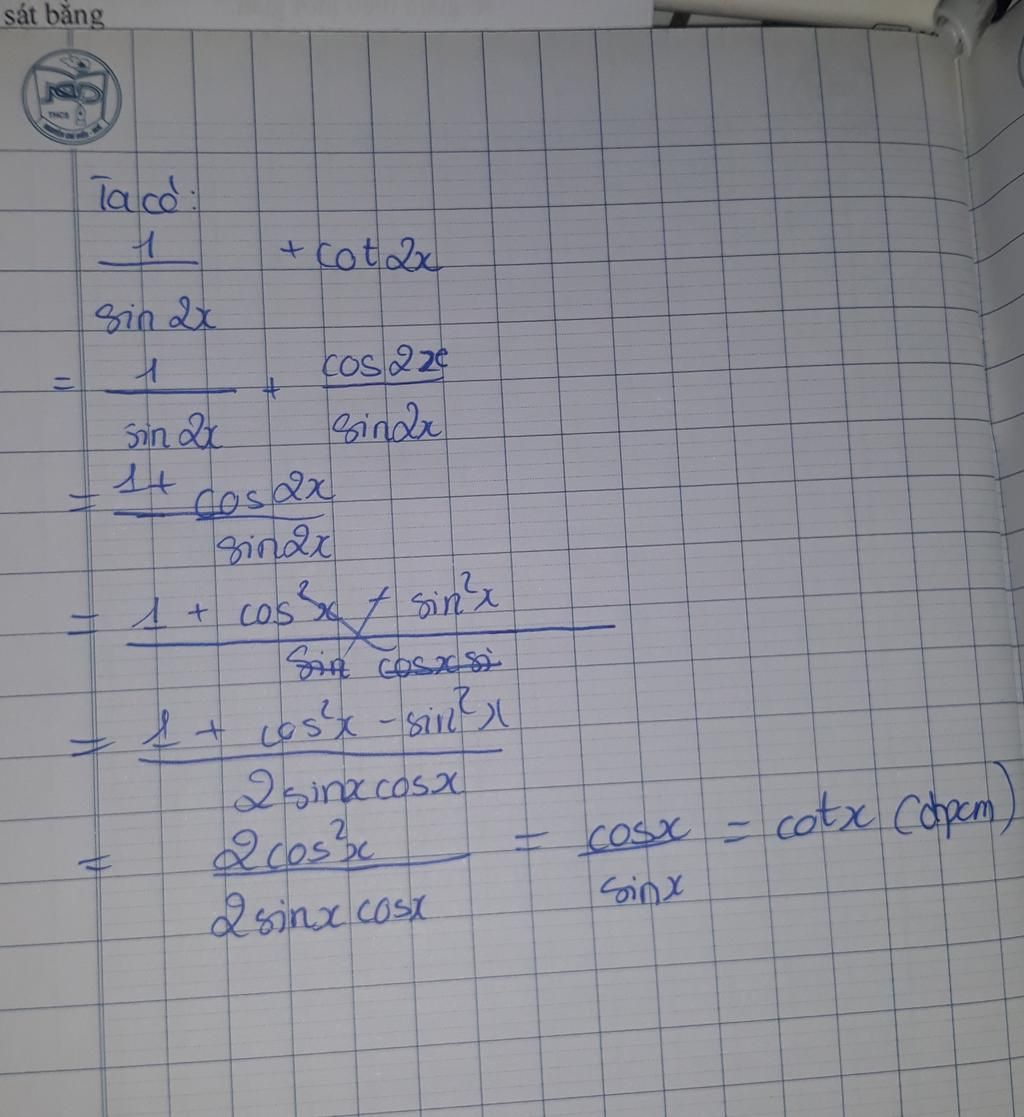 sát bằng
THCS
Ta có:
1/sin 2x + cot 2x
= 1/sin 2x + cos 2x/sin 2x
= (1 + cos 2x)/sin 2x
= (1 + cos²x + sin²x)/(sin cosx si)
= (1 + cos²x - sin²x)/(2 sinx cosx)
= 2cos²x/(2 sinx cosx) = cosx/sinx = cotx (đpcm)